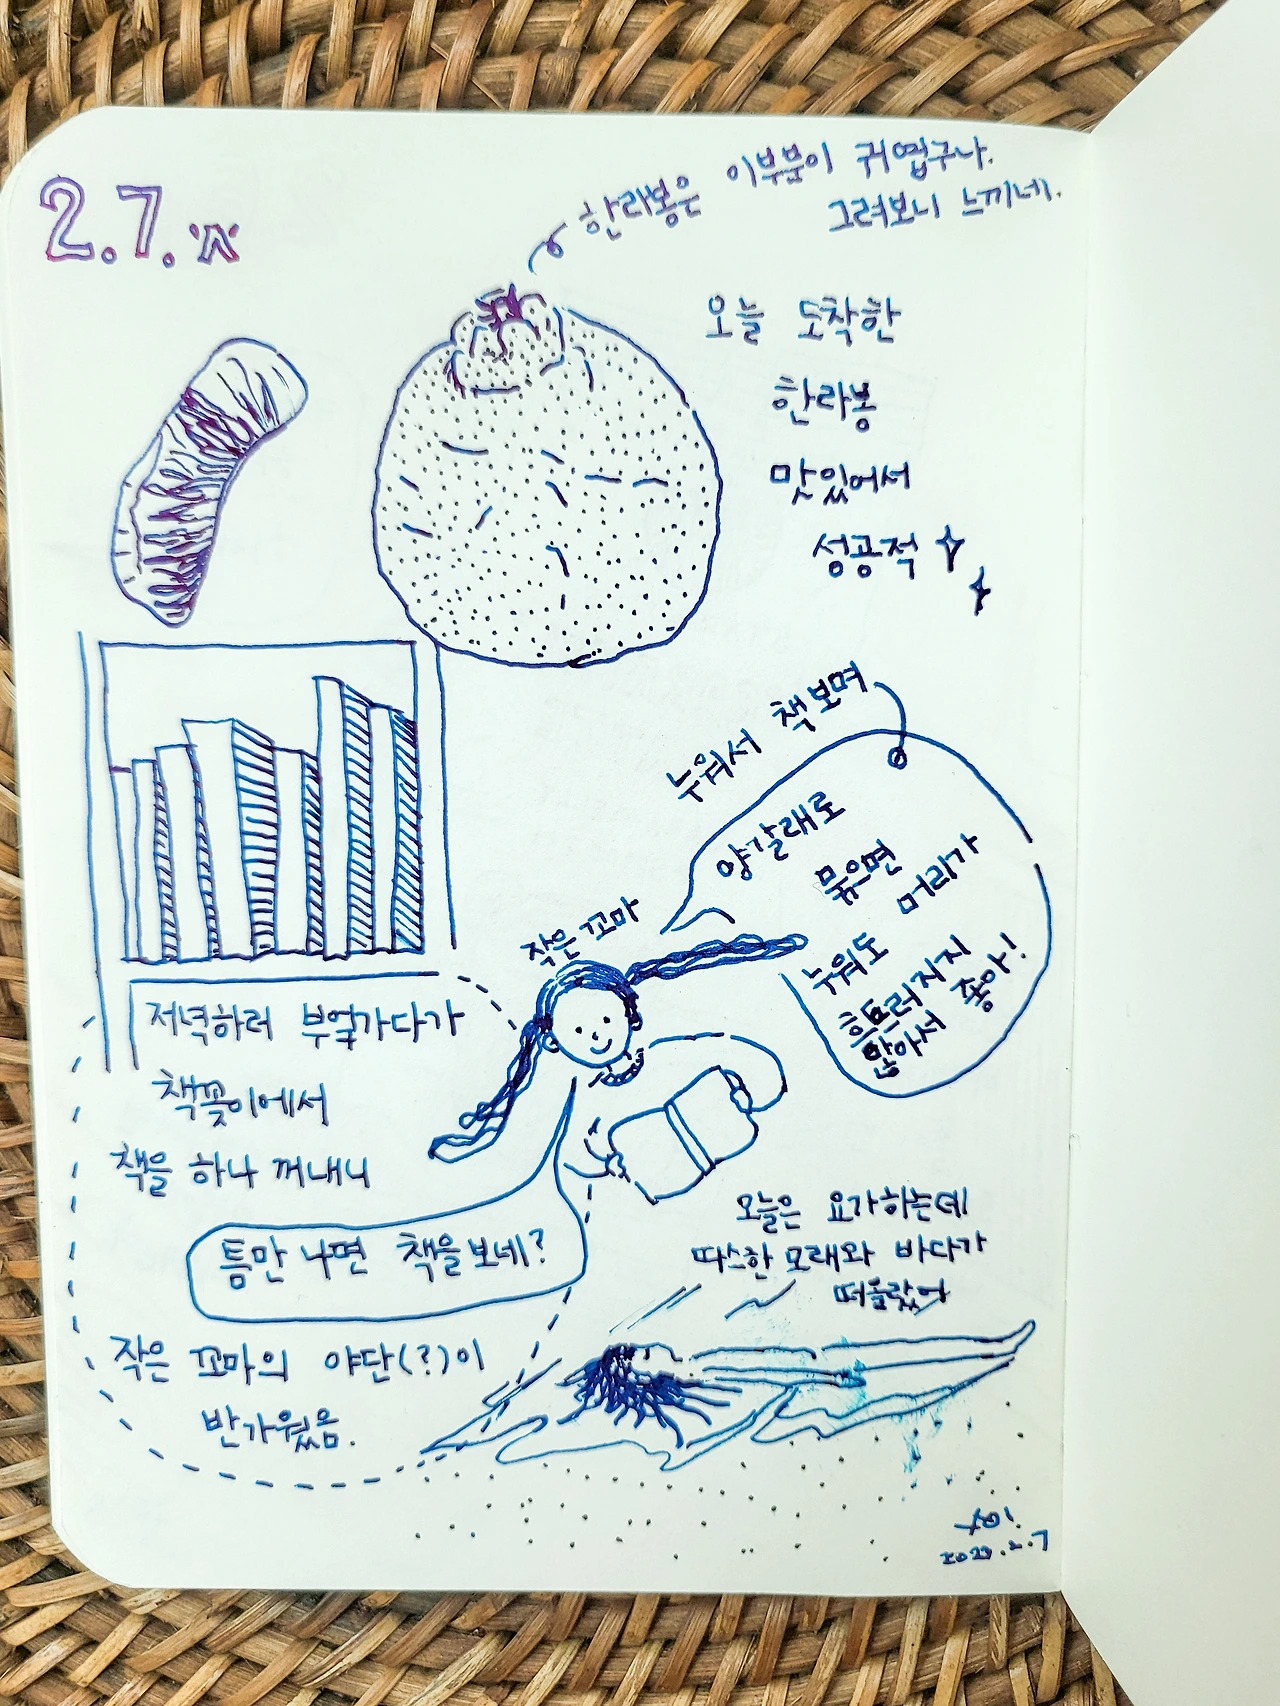 2.7.
한라봉은 이부분이 귀엽구나.
그려보니 느끼네.
오늘 도착한
한라봉
맛있어서
성공적
누워서 책보며
양갈래로
묶으면
머리가
누워도
흐트러지지
않아서 좋아!
작은 꼬마
저녁하러 부엌가다가
책꽂이에서
책을 하나 꺼내니
틈만 나면 책을 보네?
작은 꼬마의 야단(?)이
반가웠음.
오늘은 요가하는데
따스한 모래와 바다가
떠올랐어